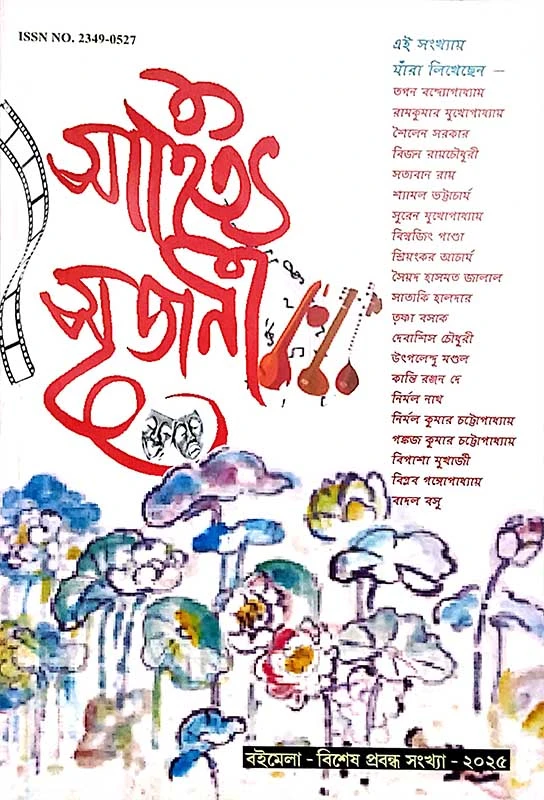 ISSN NO. 2349-0527
সাহিত্য
সৃজনী
এই সংখ্যায়
যাঁরা লিখেছেন –
তপন বন্দ্যোপাধ্যায়
রামকুমার মুখোপাধ্যায়
শৈলেন সরকার
বিজন রায়চৌধুরী
সত্যবান রায়
শ্যামল ভট্টাচার্য
সুরেন মুখোপাধ্যায়
বিশ্বজিৎ পাণ্ডা
প্রিয়ংকর আচার্য
সৈয়দ হাসমত জালাল
সাত্যকি হালদার
তৃষ্ণা বসাক
দেবাশিস চৌধুরী
উৎপলেন্দু মণ্ডল
কান্তি রঞ্জন দে
নির্মল নাথ
নির্মল কুমার চট্টোপাধ্যায়
পঙ্কজ কুমার চট্টোপাধ্যায়
বিপাশা মুখার্জী
বিপ্লব গঙ্গোপাধ্যায়
বাদল বসু
বইমেলা - বিশেষ প্রবন্ধ সংখ্যা - ২০২৫